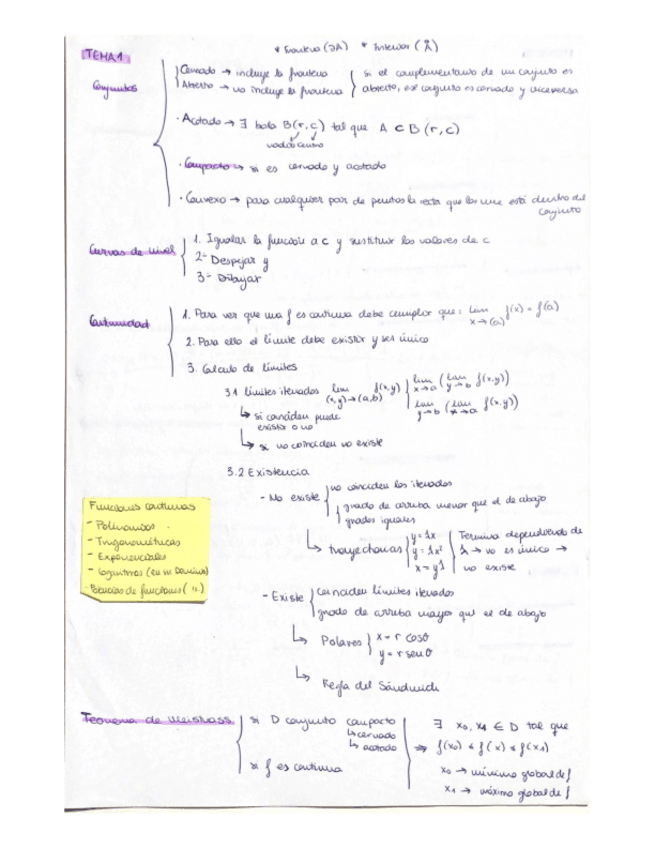 * Frontera (∂A) * Interior (Å)
TEMA 1
Conjuntos
Cerrado → incluye la frontera
Abierto → no incluye la frontera
si el complementario de un conjunto es
abierto, ese conjunto es cerrado y viceversa
· Acotado → ∃ bola B(r,c) tal que A ⊂ B(r,c)
radio centro
· Compacto → si es cerrado y acotado
· Convexo → para cualquier par de puntos la recta que los une está dentro del
conjunto
Curvas de nivel
1. Igualar la función a c y sustituir los valores de c
2- Despejar y
3- Dibujar
Continuidad
1. Para ver que una f es continua debe cumplir que: lim f(x) = f(a)
x→(a)
2. Para ello el límite debe existir y ser único
3. Calculo de límites
3.1 límites iterados lim f(x,y)
(x,y)→(a,b)
lim (lim f(x,y))
x→a y→b
lim (lim f(x,y))
y→b x→a
↳ si coinciden puede
existir o no
↳ si no coinciden no existe
3.2 Existencia
- No existe
no coinciden los iterados
grado de arriba menor que el de abajo
grados iguales
↳ trayectorias
y = λx
y = λx²
x = yλ
Termina dependiendo de
λ → no es único →
no existe
Funciones continuas
- Polinomios
- Trigonométricas
- Exponenciales
- logaritmos (en su dominio)
- Potencias de funciones ( )
- Existe
coinciden límites iterados
grado de arriba mayor que el de abajo
↳ Polares
x = r cosθ
y = r senθ
↳ Regla del Sándwich
Teorema de Weistrass
si D conjunto compacto
↳ cerrado
↳ acotado
si f es continua
⇒
∃ x₀, x₁ ∈ D tal que
f(x₀) ≤ f(x) ≤ f(x₁)
x₀ → mínimo global de f
x₁ → máximo global de f